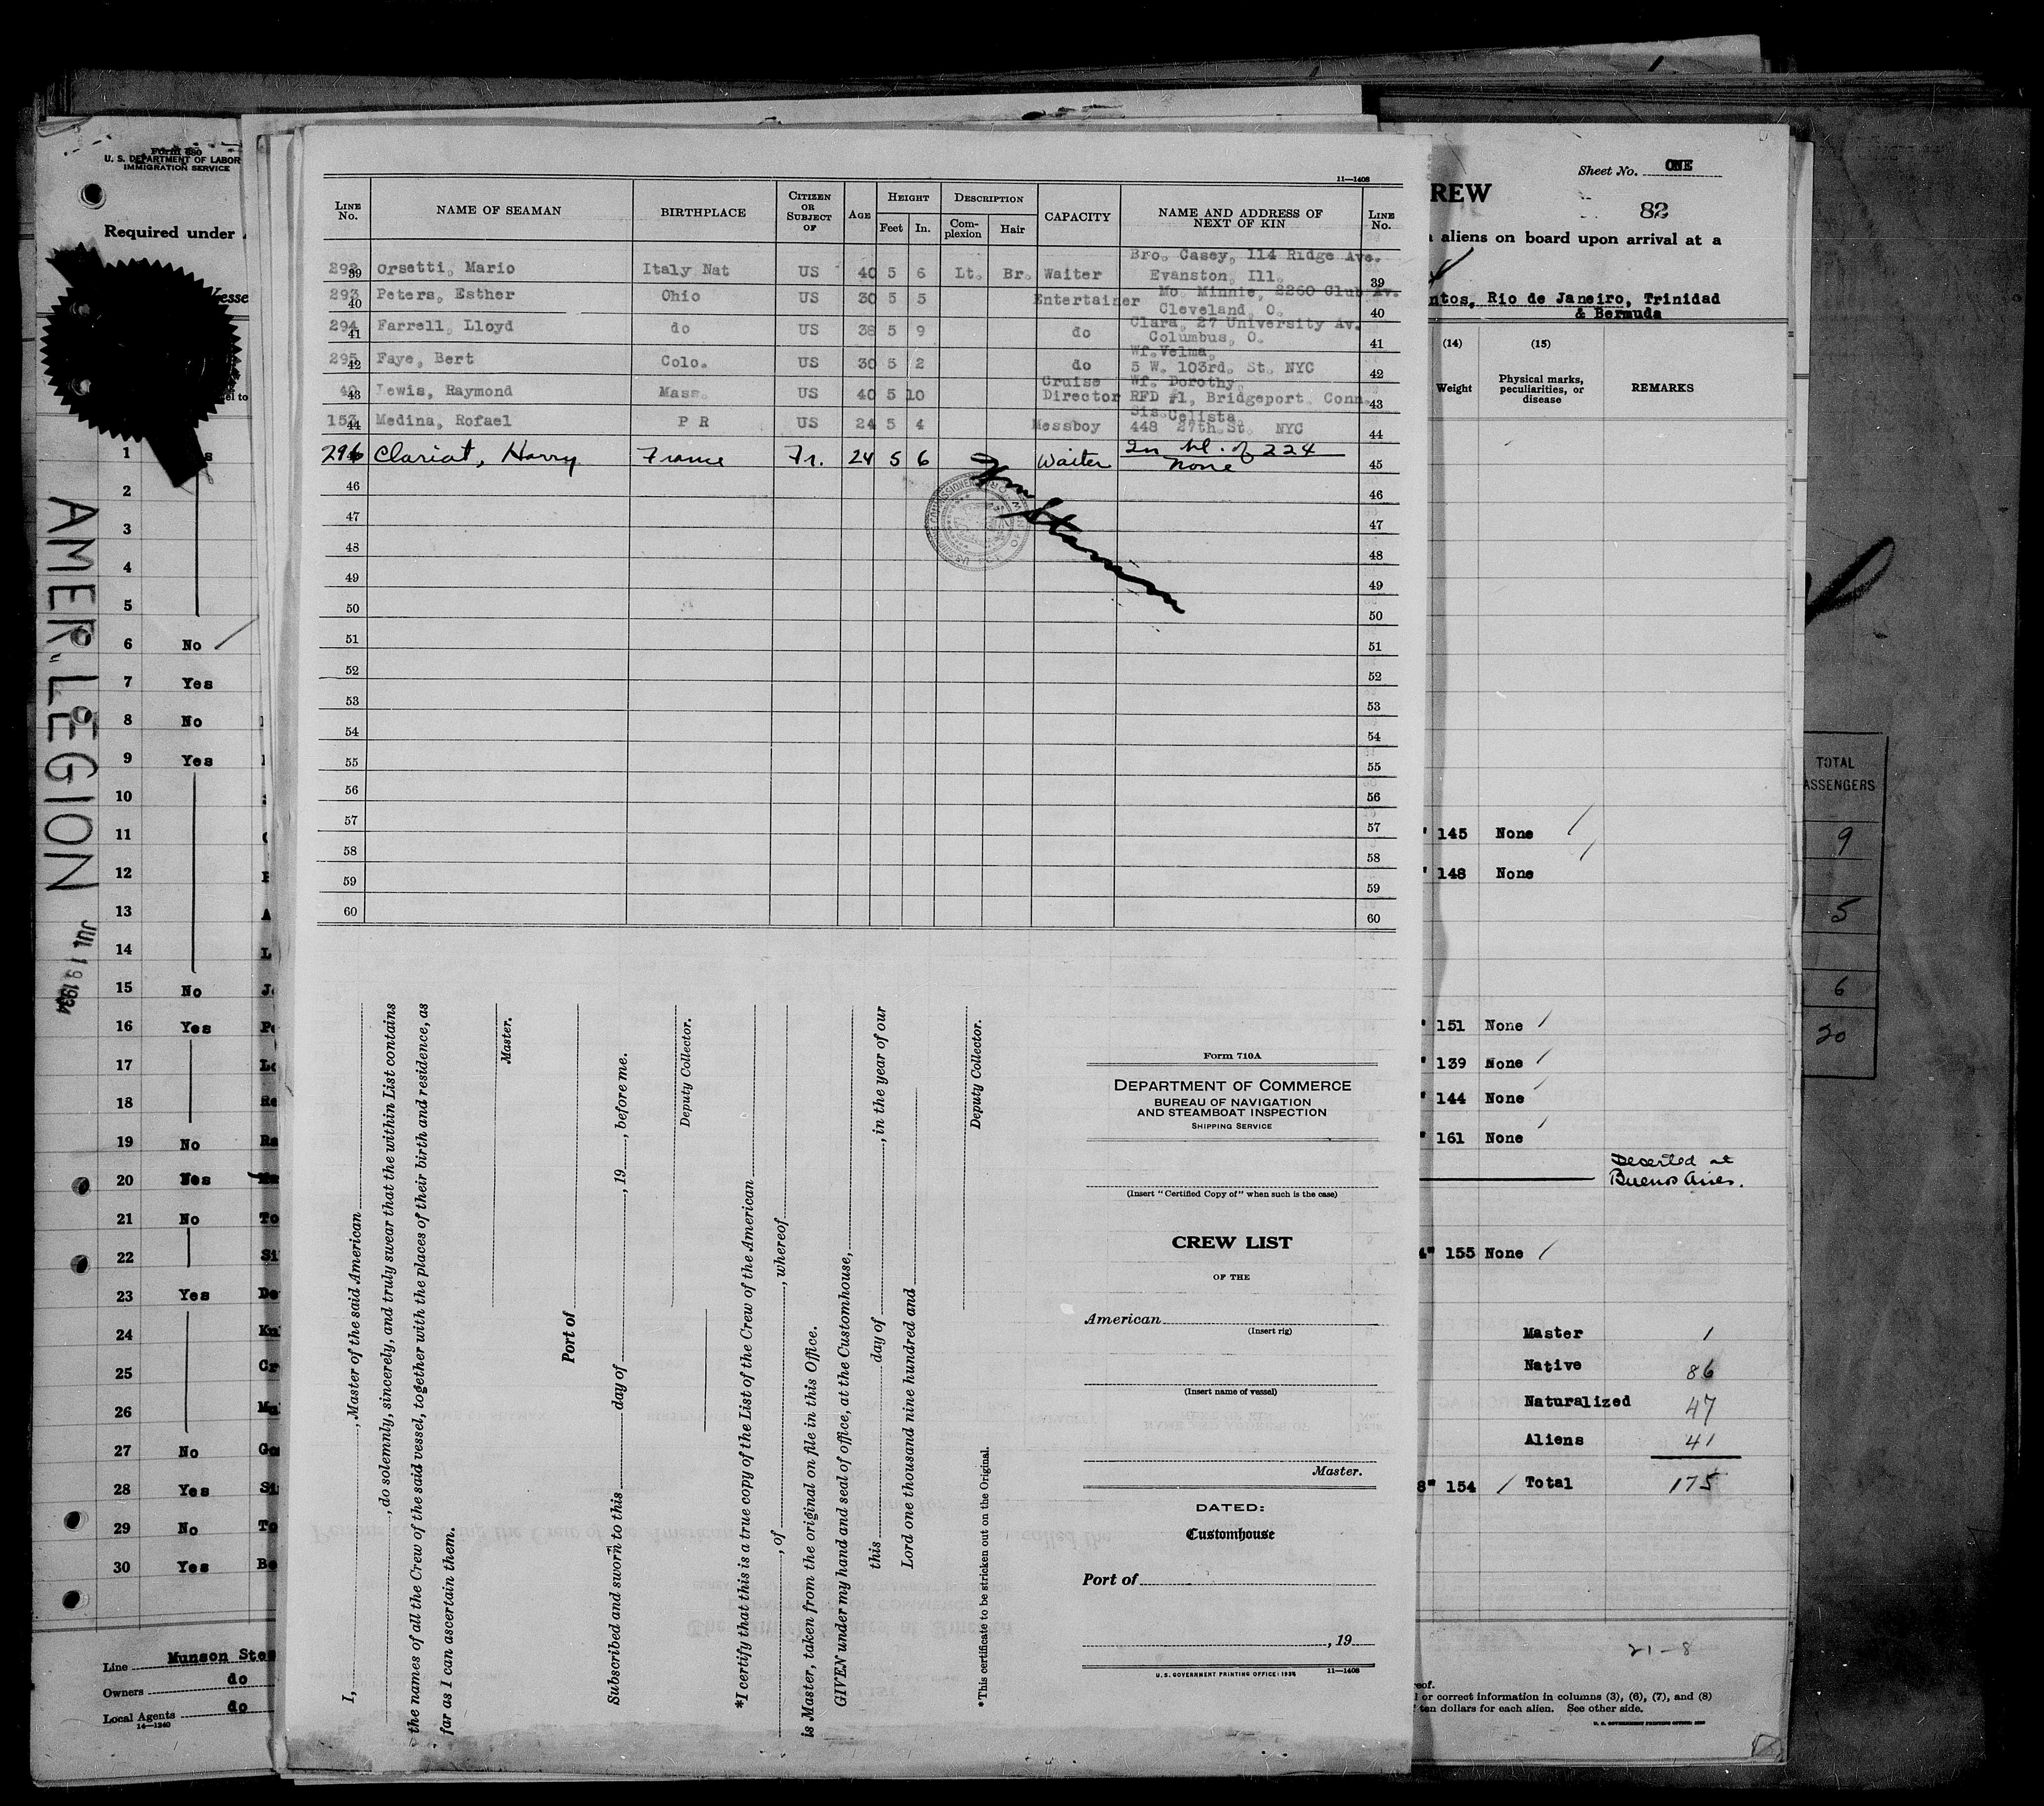 Form 680
U. S. DEPARTMENT OF LABOR
IMMIGRATION SERVICE
Required under
AMER. LEGION
JUL 19 1934
1
2
3
4
5
6 No
7 Yes
8 No
9 Yes
10
11
12
13
14
15 No
16 Yes
17
18
19 No
20 Yes
21 No
22
23 Yes
24
25
26
27 No
28 Yes
29 No
30 Yes
Line Munson Ste
Owners do
Local Agents do
14—1240
11—1408
LINE No. NAME OF SEAMAN BIRTHPLACE CITIZEN OR SUBJECT OF AGE HEIGHT Feet In. DESCRIPTION Complexion Hair CAPACITY NAME AND ADDRESS OF NEXT OF KIN LINE No.
292 39 Orsetti, Mario Italy Nat US 40 5 6 Lt. Br. Waiter Bro. Casey, 114 Ridge Ave. Evanston, Ill. 39
293 40 Peters, Esther Ohio US 30 5 5 Entertainer Mo. Minnie, 2260 Club Av. Cleveland, O. 40
294 41 Farrell, Lloyd do US 38 5 9 do Clara, 27 University Av. Columbus, O. 41
295 42 Faye, Bert Colo. US 30 5 2 do Wf. Velma, 5 W. 103rd. St. NYC 42
43 Lewis, Raymond Mass. US 40 5 10 Cruise Director Wf. Dorothy, RFD #1, Bridgeport Conn. 43
44 Medina, Rofael P R US 24 5 4 Messboy Sis. Celista, 448 27th. St. NYC 44
296 Clariot, Harry France Fr. 24 5 6 Waiter In pl. of 224 None 45
Wm Stamm
46 46
47 47
48 48
49 49
50 50
51 51
52 52
53 53
54 54
55 55
56 56
57 57
58 58
59 59
60 60
I, , Master of the said American
, do solemnly, sincerely, and truly swear that the within List contains
the names of all the Crew of the said vessel, together with the places of their birth and residence, as
far as I can ascertain them.
Master.
Port of
Subscribed and sworn to this day of , 19 , before me.
Deputy Collector.
*I certify that this is a true copy of the List of the Crew of the American
, of , whereof
is Master, taken from the original on file in this Office.
GIVEN under my hand and seal of office, at the Customhouse,
this day of , in the year of our
Lord one thousand nine hundred and
Deputy Collector.
*This certificate to be stricken out on the Original.
Form 710A
DEPARTMENT OF COMMERCE
BUREAU OF NAVIGATION
AND STEAMBOAT INSPECTION
SHIPPING SERVICE
(Insert "Certified Copy of" when such is the case)
CREW LIST
OF THE
American
(Insert rig)
(Insert name of vessel)
Master.
DATED:
Customhouse
Port of
, 19
U. S. GOVERNMENT PRINTING OFFICE: 1934 11—1408
Sheet No. ONE
REW
82
aliens on board upon arrival at a
ntos, Rio de Janeiro, Trinidad
& Bermuda
(14) (15)
Weight Physical marks, peculiarities, or disease REMARKS
145 None
148 None
151 None
139 None
144 None
161 None
Deserted at
Buenos Aires.
155 None
Master 1
Native 86
Naturalized 47
Aliens 41
154 Total 175
21-8
reof.
l or correct information in columns (3), (6), (7), and (8)
ten dollars for each alien. See other side.
TOTAL
ASSENGERS
9
5
6
20